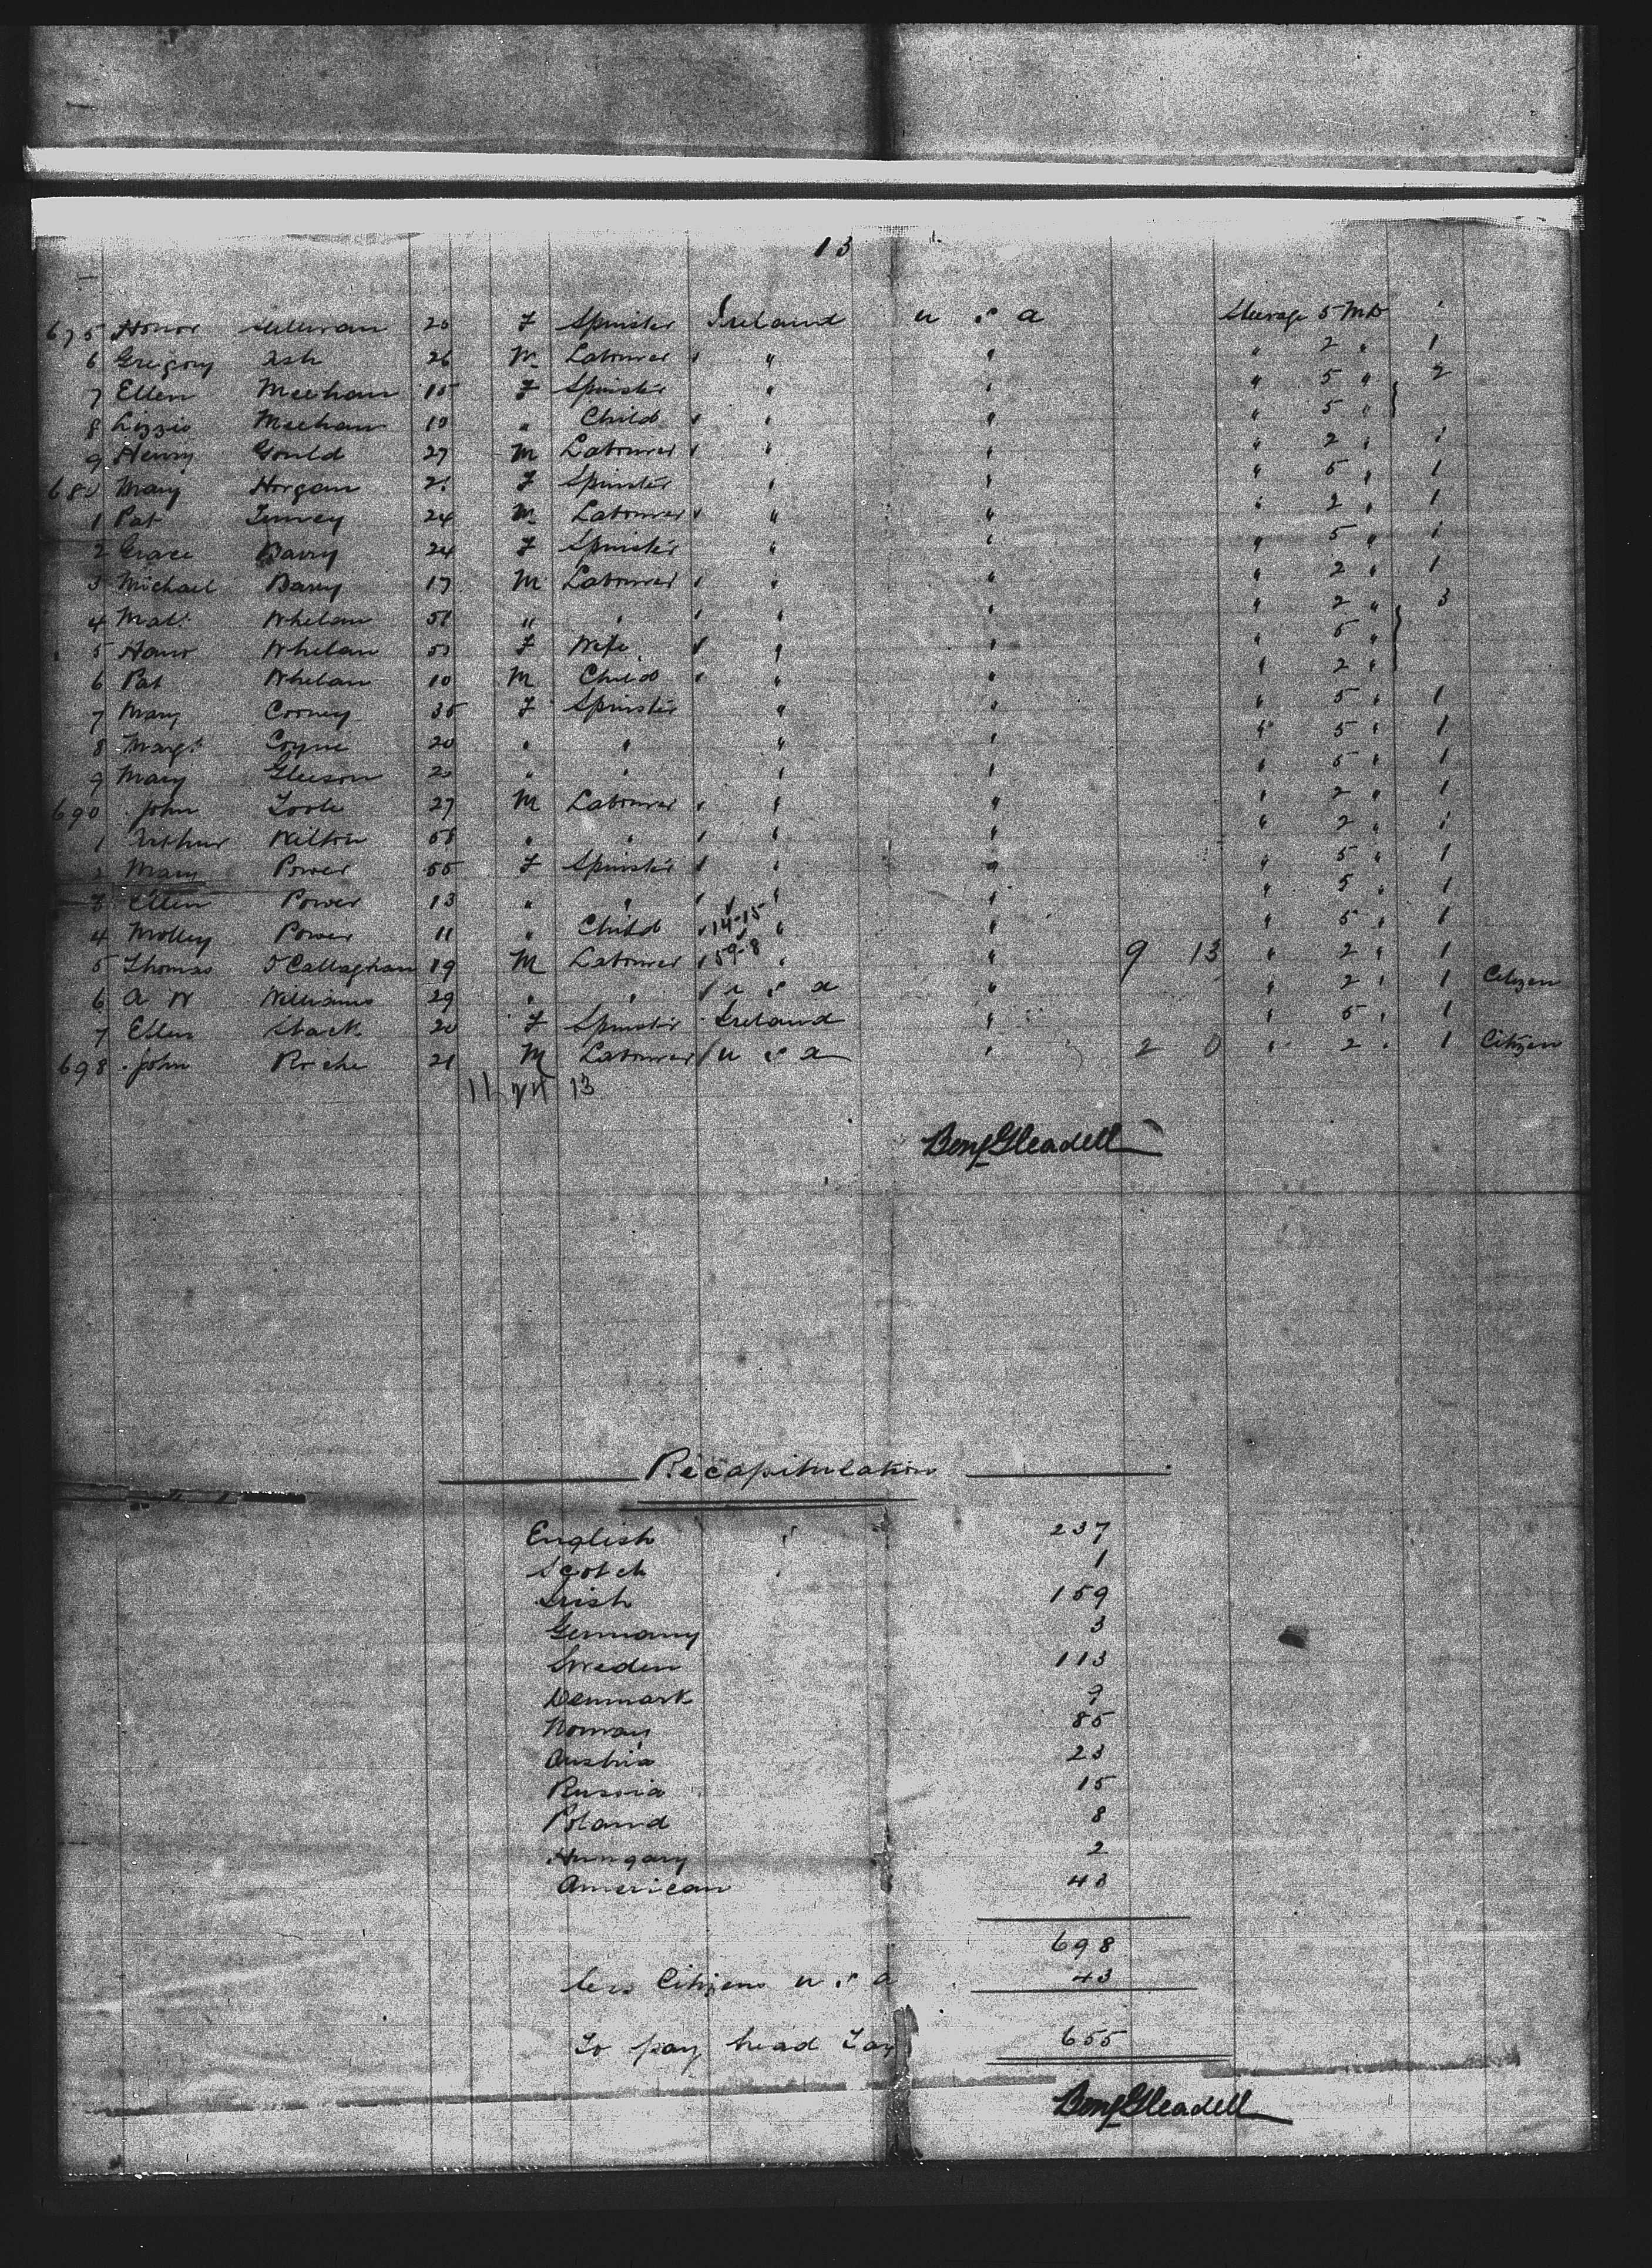 13
675 Honor Sullivan 20 F Spinster Ireland U S A Steerage 5 MD
6 Gregory Ash 26 M Labourer " " " 2 " 1
7 Ellen Meehan 15 F Spinster " " " 5 " 2
8 Lizzie Meehan 10 " Child " " " 5 "
9 Henry Gould 27 M Labourer " " " 2 " 1
680 Mary Horgan F Spinster " " " 5 " 1
1 Pat 24 M Labourer " " " 2 " 1
2 Grace Barry 24 F Spinster " " " 5 " 1
3 Michael Barry 17 M Labourer " " " 2 " 1
4 Mat: Whelan " " " " " 2 " 3
5 Whelan F Wife " " " 5 "
6 Pat Whelan 10 M Child " " " 2 "
7 Mary Cooney 35 F Spinster " " " 5 " 1
8 Margt Coyne 20 " " " " " 5 " 1
9 Mary Gleeson 20 " " " " " 5 " 1
690 John Toole 27 M Labourer " " " 2 " 1
1 Arthur Wilton 58 " " " " " 2 " 1
2 Mary Power 55 F Spinster " " " 5 " 1
3 Ellen Power 13 " " " " " 5 " 1
4 Molley Power 11 " Child 14-15 " " " 5 " 1
5 Thomas O'Callaghan 19 M Labourer 59-8 " " 9 13 " 2 " 1
6 A W Williams 29 " " U S A " " 2 " 1 Citizen
7 Ellen Stack 20 F Spinster Ireland " " 5 " 1
698 John Roche 21 M Labourer U S A " 2 0 " 2 " 1 Citizen
11 13
Benj Gleadell
Recapitulation
English 237
Scotch 1
Irish 159
Germany 3
Sweden 113
Denmark 9
Norway 85
Austria 23
Russia 15
Poland 8
Hungary 2
American 43
698
less Citizens U S A 43
To pay head Tax 655
Benj Gleadell